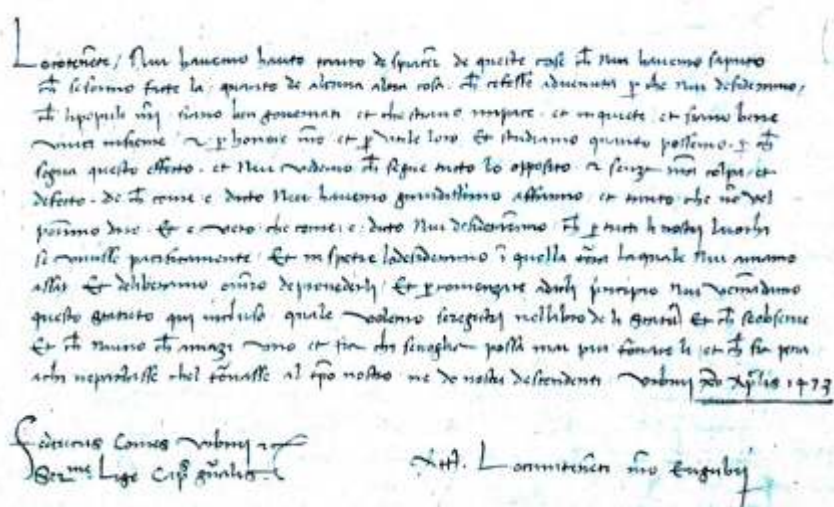 Locotenente / Nui havemo hauto tanto despiacer de queste cose che Nui havemo saputo
che se sonno facte la, quanto de alcuna altra cosa che ce fosse advenuta perche Nui desideramo,
che li populi nostri siano ben governati et che stiano in pace, et in quiete, et siano bene
uniti insieme, et per honore nostro et per utile loro. Et studiamo quanto possemo per che
segua questo effecto, et Nui vedemo che segue tutto lo opposito et senza nostra colpa, et
defecto. de che come e dicto Nui havemo grandissimo affanno, et tanto che non vel
porimo dire. Et e vero che come e dicto Nui desideraremo che per tutti li nostri luochi
se vivesse pacificamente. Et in spetie lo desideramo in quella terra la quale Nui amamo
assai. Et deliberamo omnino de provederli. Et per comenzare a darli principio Nui ve mandamo
questo statuto qui incluso quale volemo se registri nel libro de li statuti Et che se observe
Et che niuno che amazi uno et sia chi se voglia possa mai piu tornare li, et che sia pena
a chi ne parlasse chel tornasse al tempo nostro ne de nostri descendenti. Urbini Aprilis 1473
Federicus Comes Urbini etc
Ser.me Lige Cap. gnalis.
Locumtenenti nro Eugubii